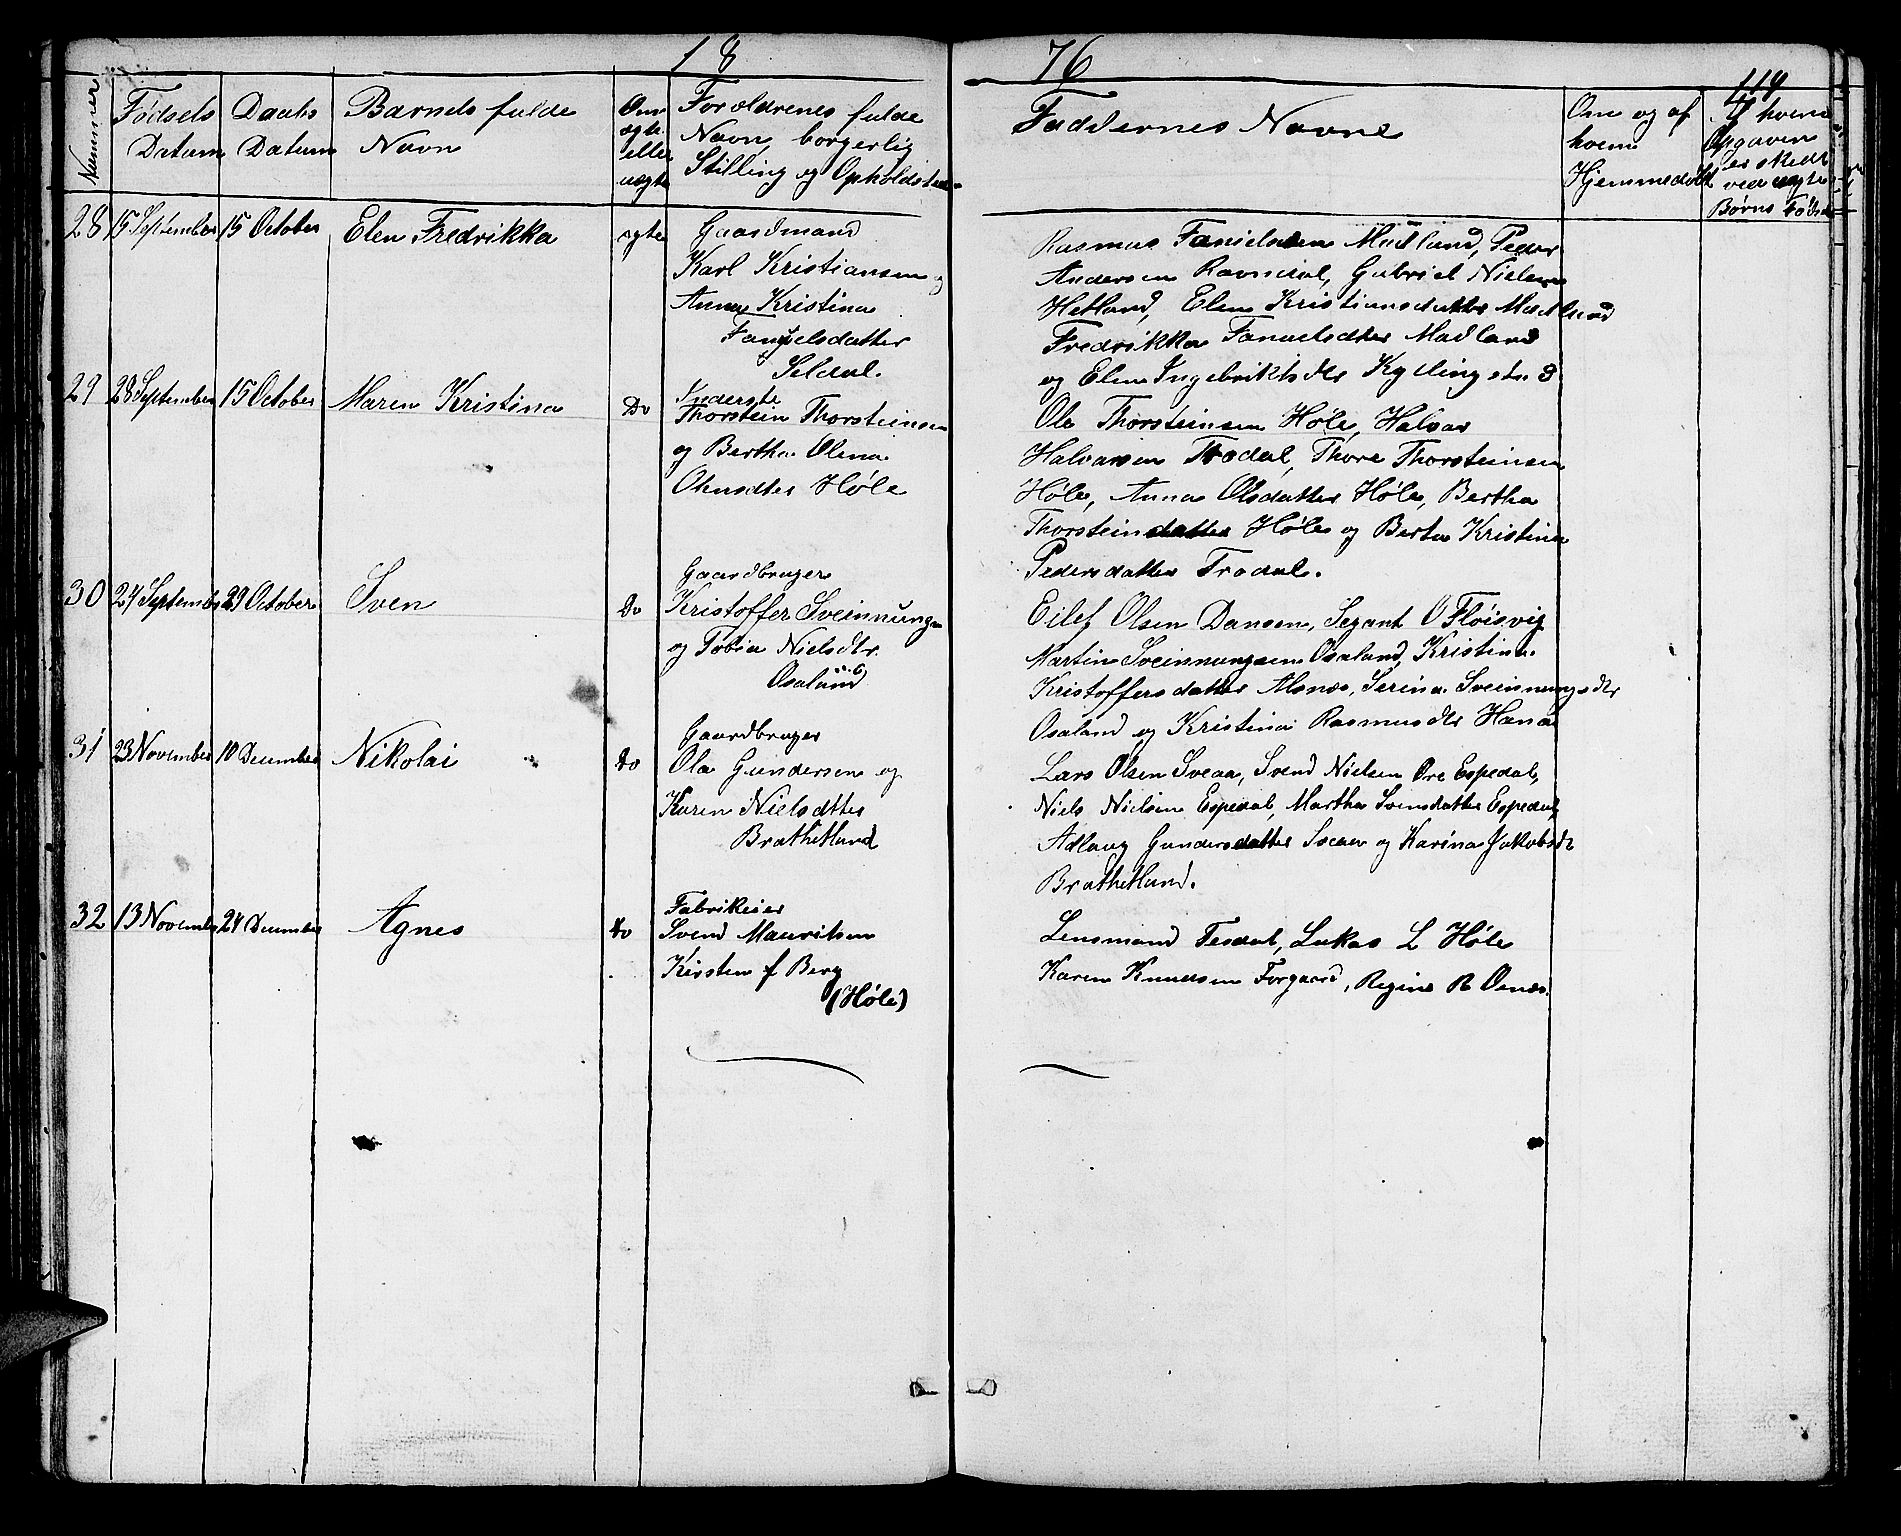 18
76
114
Nummer
Fødsels
Datum
Daabs
Datum
Barnets fulde
Navn
Om
ægte
eller
uægte
Forældrenes fulde
Navn, borgerlig
Stilling og Opholdsted
Faddernes Navne
Om og af
hvem
Hjemmedøbt
Af hvem
Opgaven
er skedt
ved uægte
Børns Føds
28 15 September 15 October Elen Fredrikka ægte
Gaardmand
Karl Kristiansen og
Anna Kristina
Fanuelsdatter
Seldal.
Rasmus Fanuelsen Madland, Peder
Andersen Ravndal, Gabriel Nielsen
Hetland, Elen Kristiansdatter Madland
Fredrikka Fanuelsdtter Madland
og Elen Ingebriktsdtr Kyllingstr.
29 28 September 15 October Maren Kristina Do
Inderste
Thorstein Thorsteinsen
og Bertha Olena
Olausdtter Høle
Ole Thorsteinsen Høle, Halvar
Halvarsen Trodal, Thore Thorsteinsen
Høle, Anna Olsdatter Høle, Bertha
Thorsteinsdatter Høle og Berta Kristina
Pedersdatter Trodal.
30 24 September 29 October Sven Do
Gaardbruger
Kristoffer Sveinnungs
og Tobia Nielsdtr.
Osaland
Eilef Olsen Dansen, Segant O Fløisvig
Martin Sveinnungsen Osaland, Kristina
Kristoffersdatter Alsnæs, Serina Sveinnungsdtr
Osaland og Kristina Rasmusdtr Hana
31 23 November 10 December Nikolai Do
Gaardbruger
Ola Gundersen og
Karen Nielsdtter
Brathetland
Lars Olsen Sveaa, Svend Nielsen Øre Espedal,
Niels Nielsen Espedal, Martha Svensdatter Espedal,
Adlaug Gundersdatter Sveaa og Karina Jakobsdt
Brathetland.
32 13 November 24 December Agnes Do
Fabrikeier
Svend Mauritsen
Kirsten f Berg
(Høle)
Lensmand Tesdal, Lukas L Høle
Karen Knudsen Forgaard, Regine R Oenæs.